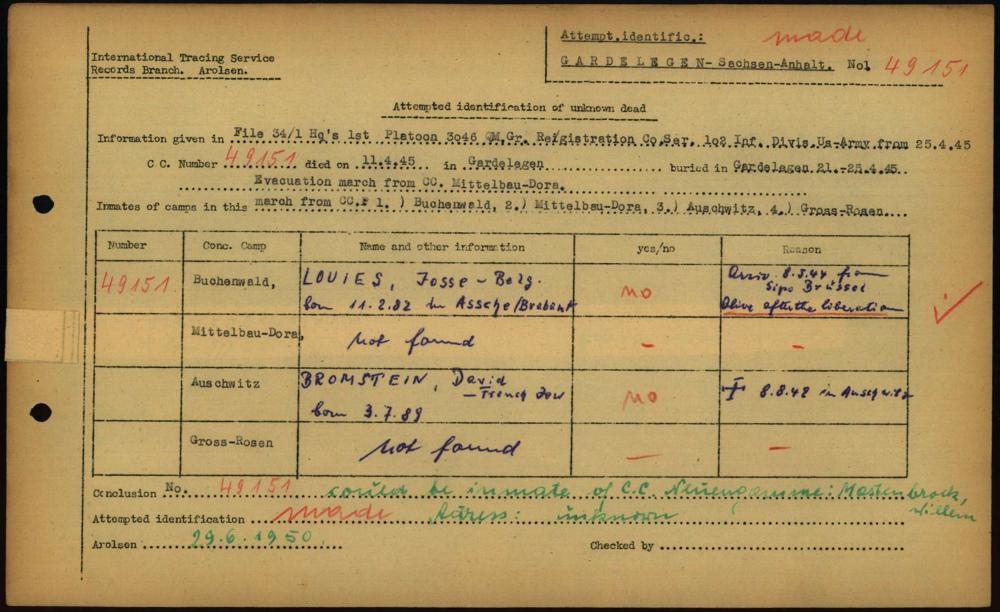 Attempt.identific.: made
International Tracing Service
Records Branch. Arolsen.
GARDELEGEN-Sachsen-Anhalt. No. 49151
Attempted identification of unknown dead
Information given in File 34/1 Hq's 1st Platoon 3046 QM.Gr. Registration Co.Ser. 102 Inf. Divis.Us-Army from 25.4.45
C.C. Number 49151 died on 11.4.45 in Gardelegen buried in Gardelegen 21.-25.4.45.
Evacuation march from CC. Mittelbau-Dora.
Inmates of camps in this march from CC.: 1.) Buchenwald, 2.) Mittelbau-Dora, 3.) Auschwitz, 4.) Gross-Rosen
Number Conc. Camp Name and other information yes/no Reason
49151 Buchenwald, LOUIES, Josse - Belg. born 11.2.82 in Assche/Brabant no Arriv. 8.5.44 from Sipo Brüssel
Alive after the liberation
Mittelbau-Dora, not found - -
Auschwitz BROMSTEIN, David - French Jew
born 3.7.89 no 8.8.42 in Auschwitz
Gross-Rosen not found - -
Conclusion No. 49151 could be inmate of C.C. Neuengamme: Mastenbroek, Willem
Attempted identification made Adress: unknown
Arolsen 29.6.1950. Checked by